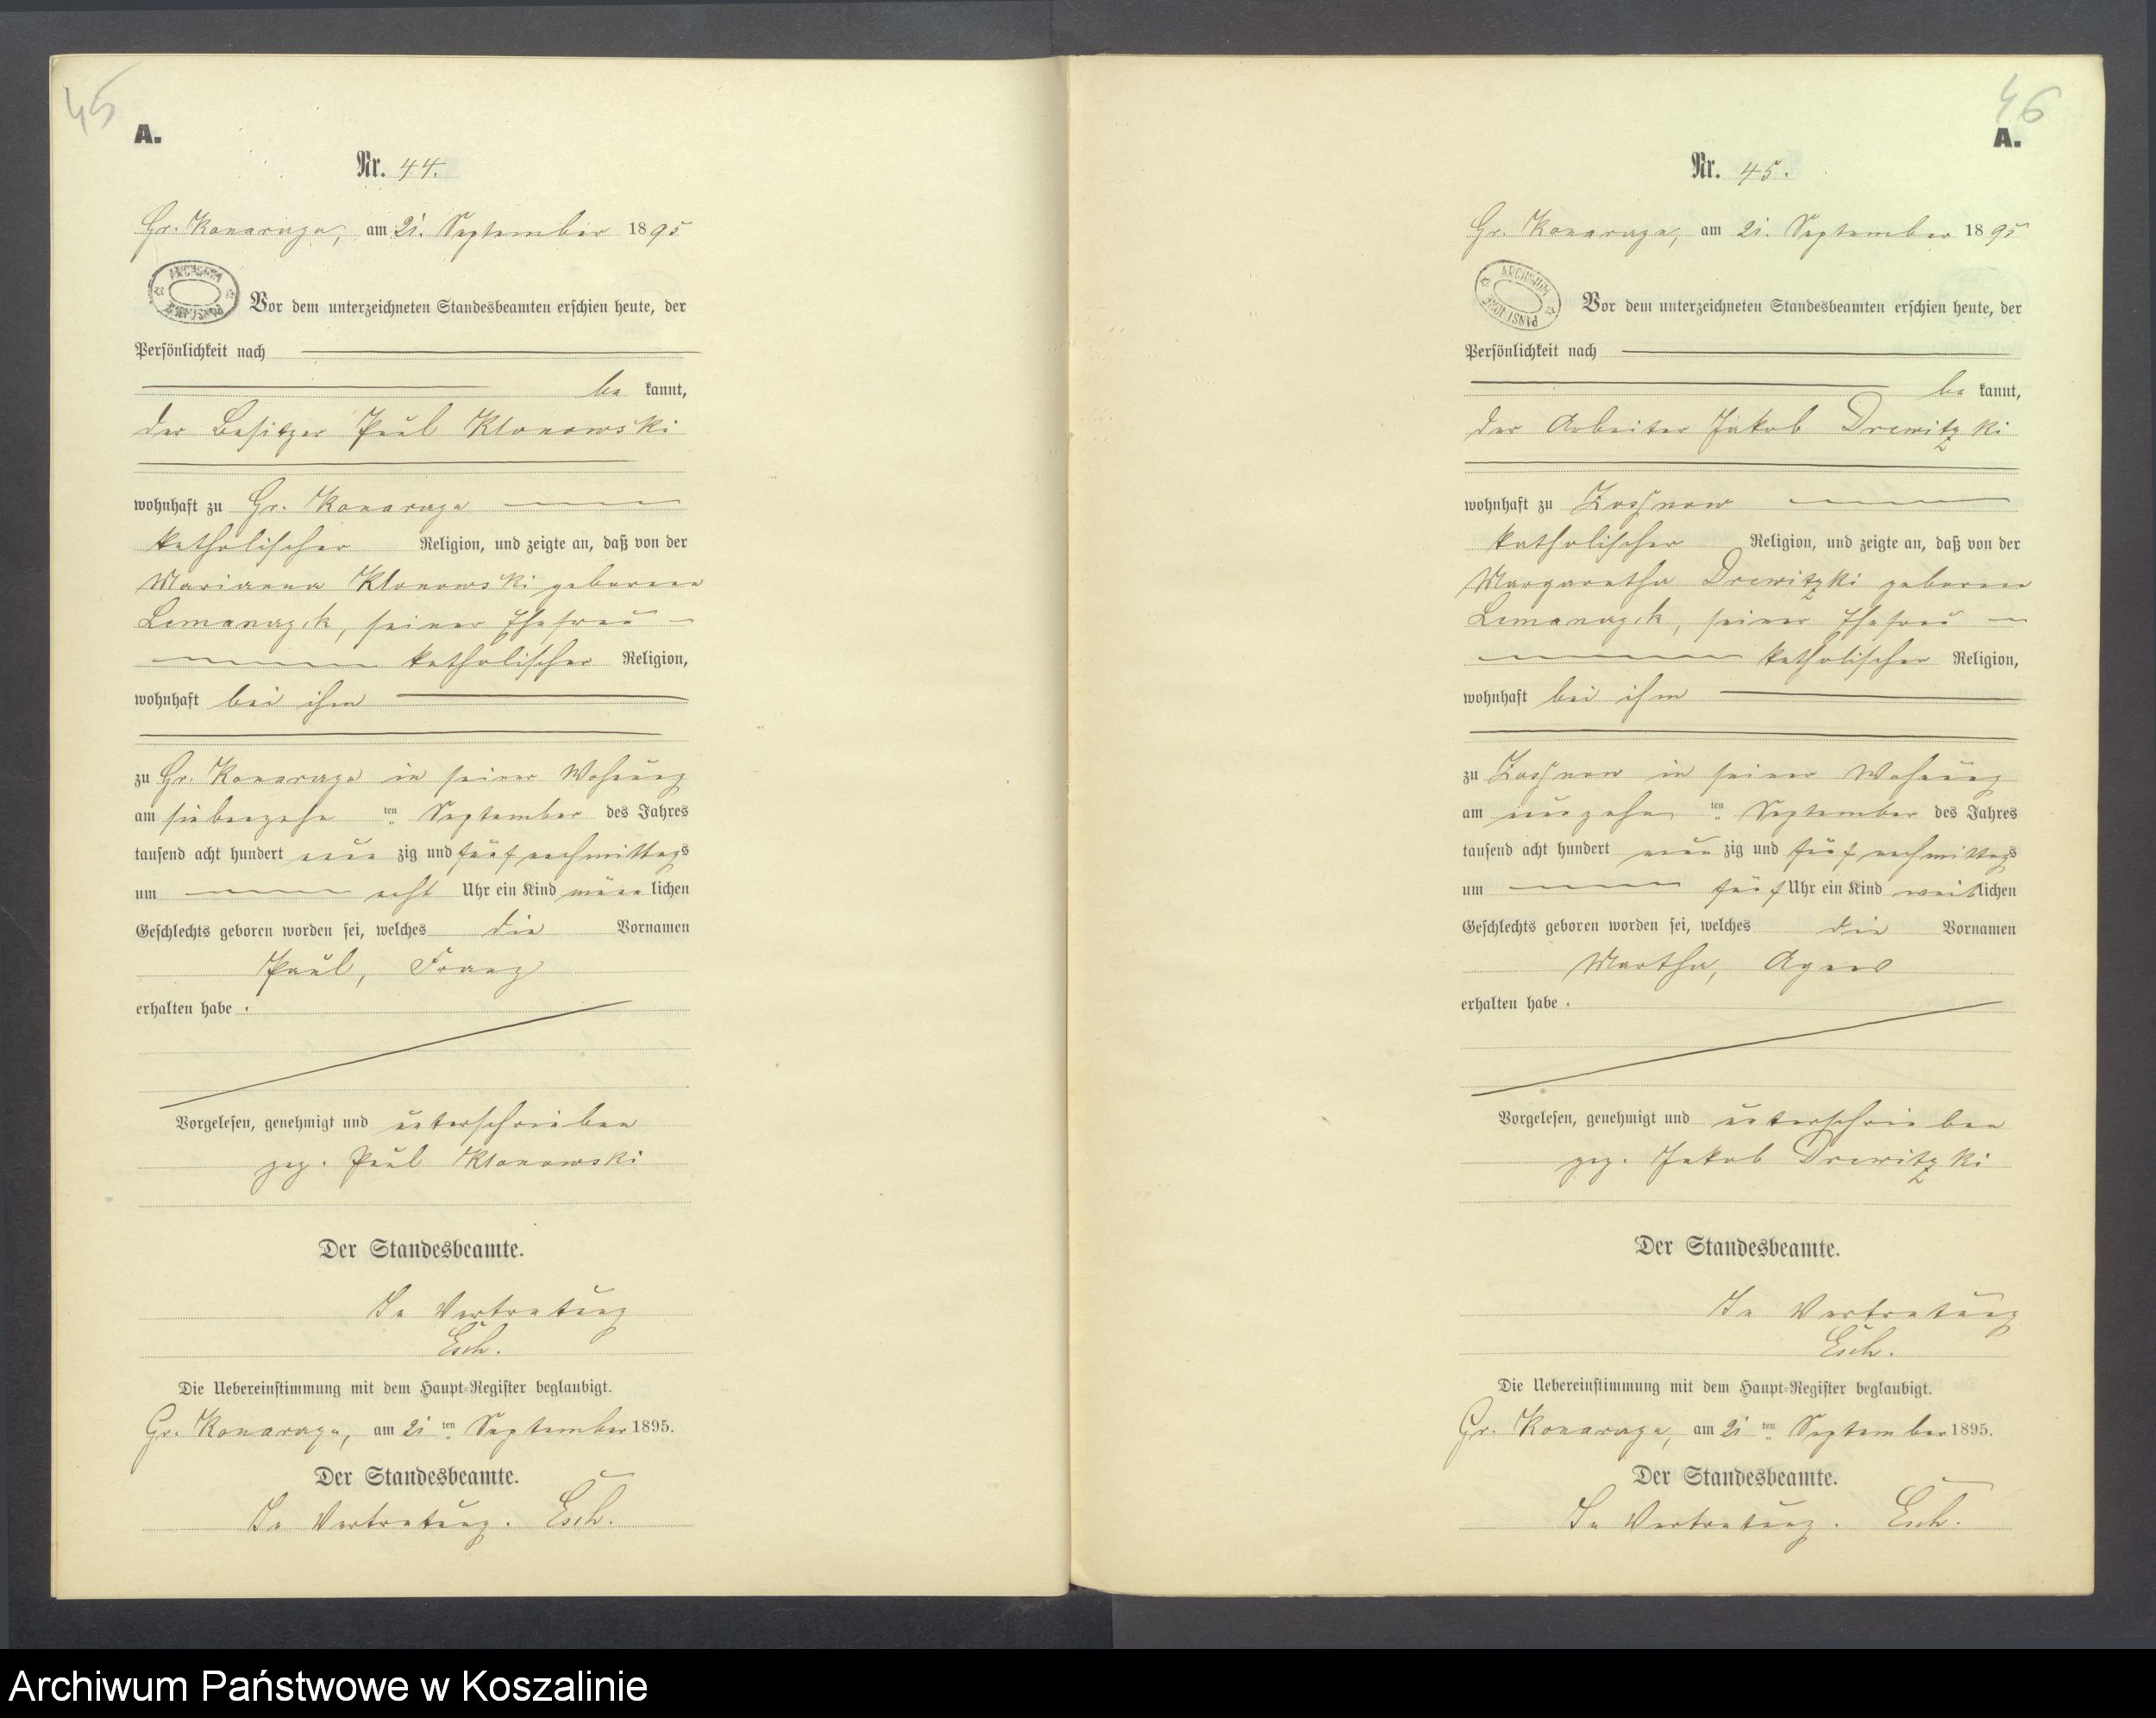 45
A.
Nr. 44.
Gr. Konarzyn, am 21. September 1895
Vor dem unterzeichneten Standesbeamten erschien heute, der
Persönlichkeit nach
be kannt,
der Besitzer Paul Klonowski
wohnhaft zu Gr. Konarzyn
katholischer Religion, und zeigte an, daß von der
Marianna Klonowski geborene
Lemanczyk, seiner Ehefrau
katholischer Religion,
wohnhaft bei ihm
zu Gr. Konarzyn in seiner Wohnung
am siebenzehn ten September des Jahres
tausend acht hundert neun zig und fünf nachmittags
um acht Uhr ein Kind männ lichen
Geschlechts geboren worden sei, welches die Vornamen
Paul, Franz
erhalten habe.
Vorgelesen, genehmigt und unterschrieben
gez. Paul Klonowski
Der Standesbeamte.
In Vertretung
Esch.
Die Uebereinstimmung mit dem Haupt-Register beglaubigt.
Gr. Konarzyn, am 21 ten September 1895.
Der Standesbeamte.
In Vertretung. Esch.
46
A.
Nr. 45.
Gr. Konarzyn, am 21. September 1895
ARCHIWUM
PAŃSTWOWE
Vor dem unterzeichneten Standesbeamten erschien heute, der
Persönlichkeit nach
be kannt,
der Arbeiter Jakob Drewitzki
wohnhaft zu
katholischer Religion, und zeigte an, daß von der
Margaretha Drewitzki geborene
Lemanczyk, seiner Ehefrau
katholischer Religion,
wohnhaft bei ihm
zu in seiner Wohnung
am neunzehn ten September des Jahres
tausend acht hundert neun zig und fünf nachmittags
um fünf Uhr ein Kind weiblichen
Geschlechts geboren worden sei, welches die Vornamen
Martha, Agnes
erhalten habe.
Vorgelesen, genehmigt und unterschrieben
gez. Jakob Drewitzki
Der Standesbeamte.
In Vertretung
Esch.
Die Uebereinstimmung mit dem Haupt-Register beglaubigt.
Gr. Konarzyn, am 21 ten September 1895.
Der Standesbeamte.
In Vertretung. Esch.
Archiwum Państwowe w Koszalinie